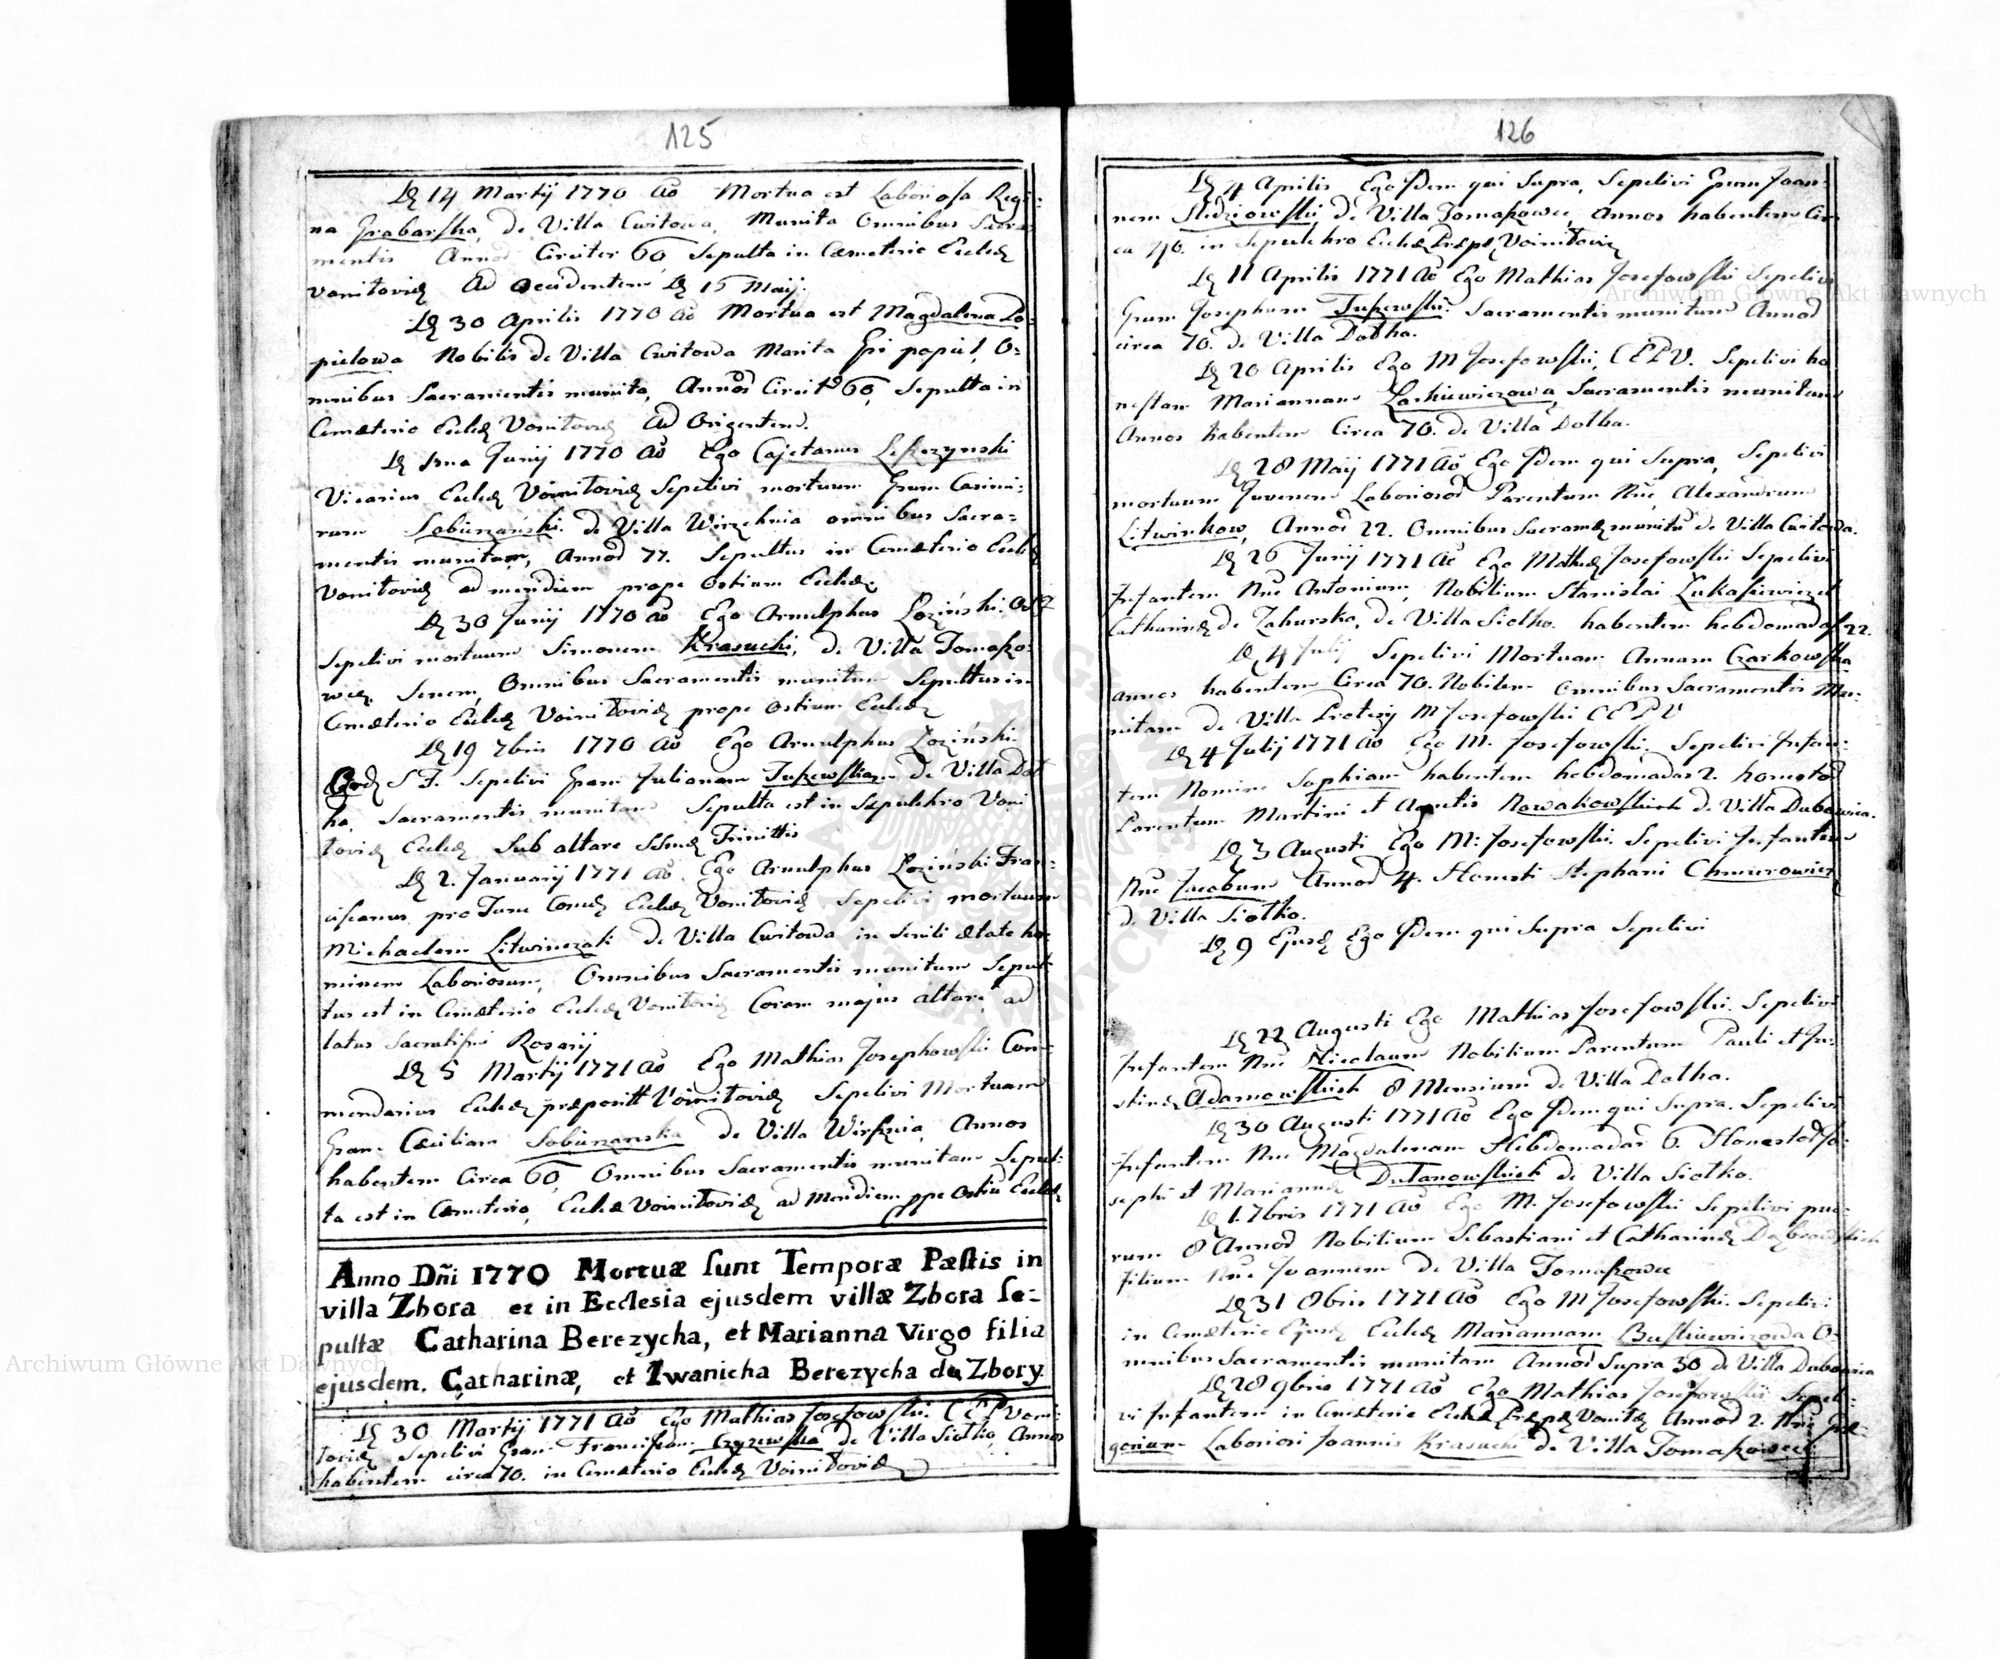 125
Die 14 Martij 1770 Ao Mortua est Laboriosa Regi-
na Grabarska, de Villa Cwitowa, Munita Omnibus Sacra-
mentis Annor Circiter 60, Sepulta in Cæmeterio Eccleæ
Vonitoviæ Ad occidentem Die 15 Maij.
Die 30 Aprilis 1770 Ao Mortua est Magdalena Lo-
pielowa Nobilis de Villa Cwitowa Marita O-
mnibus Sacramentis munita, Annor Circitr 60, Sepulta in
Cemæterio Eccleæ Vonitoviæ Ad Origentem.
Die 1ma Junij 1770 Ao Ego Cajetanus Lekczynski
Vicarius Eccleæ Voinitoviæ Sepelivi mortuum Grum Casimi-
rum de Villa Wirzchnia omnibus Sacra-
mentis munitum, Annor 77. Sepultus in Cemæterio Eccleæ
Vonitoviæ ad meridiem prope ostium Eccleæ.
Die 30 Junij 1770 Ao Ego Arnulphus Loziński
Sepelivi mortuum Simonem Krasucki, de Villa Tomako-
Senem, Omnibus Sacramentis munitum Sepultus in
Cemæterio Eccleæ Voinitoviæ prope ostium Eccleæ
Die 19 7bris 1770 Ao Ego Arnulphus Loziński
S F. Sepelivi Gram Julianam de Villa Dol-
ha, Sacramentis munitam Sepulta est in Sepulchro Voni
toviæ Eccleæ Sub altare SSmæ Trinittis
Die 2. January 1771 Ao. Ego Arnulphus Loziński Fran-
ciscanus pro Tunc Eccleæ Vonitoviæ Sepelivi mortuum
Michaelem Litwinczak de Villa Cwitowa in Senili ætate ho-
minem Laboriosum, Omnibus Sacramentis munitum Sepul-
tus est in Cemæterio Eccleæ Vonitoviæ Coram majus altare, ad
latus Rosarij
Die 5 Martij 1771 Ao Ego Mathias Josephowski Com-
mendarius Eccleæ præposit Voinitoviæ Sepelivi Mortuam
Gram Cæciliam de Villa Annos
habentem Circa 60, Omnibus Sacramentis munitam Sepul-
ta est in Cæmeterio, Eccleæ Voinitoviæ ad Meridiem ppe Ostiu Eccleæ
Anno Dñi 1770 Mortuæ sunt Temporæ Pæstis in
villa Zbora et in Ecclesia ejusdem villæ Zbora se-
pultæ Catharina Berezycha, et Marianna Virgo filia
ejusdem. Catharinæ, et Iwanicha Berezycha de Zbory.
Die 30 Martij 1771 Ao Ego Mathias Josefowski. C E P Voni-
toviæ Sepelivi Gram Franciscam Czyzewska de Villa Siolko, Annos
habentem circa 70. in Cemæterio Eccleæ Voinitoviæ
126
Die 4 Aprilis Ego Idem qui Supra, Sepelivi Grum Joan-
nem Sledziowski de Villa Tomakowce, Annos habentem Cir-
ca 40. in Sepulchro Eccleæ Præpæ Voinitoviæ
Die 11 Aprilis 1771 Ao Ego Mathias Josefowski Sepelivi
Grum Josephum Sacramentis munitum Annor
circa 70. de Villa Dolha.
Die 20 Aprilis Ego M Josefowski, C E P V. Sepelivi ho
nestam Mariannam Laskiewiczowa, Sacramentis munitam
Annos habentem Circa 70. de Villa Dolha.
Die 28 Maij 1771 Ao Ego Idem qui Supra, Sepelivi
mortuum Juvenem Laboriosor Parentum Nne Alexandrum
Litwinkow, Annor 22. Omnibus Sacramæ munitu de Villa Cwitowa.
Die 26 Junij 1771 Ao Ego Mathæ Josefowski Sepelivi
Infantem Nne Antonium, Nobilium Stanislai Lukasiewicz et
Catharinæ de Zaburska, de Villa Siolko. habentem hebdomadas 22.
Die 4 Julij Sepelivi Mortuam Annam Czarkowska
annos habentem Circa 70. Nobilem Omnibus Sacramentis Mu-
nitam de Villa M Josefowski C E P V
Die 4 Julij 1771 Ao Ego M. Josefowski. Sepelivi Infan-
tem Nomine Sophiam habentem hebdomadas 2. honestor
Parentum Martini et Agnetis Nowakowskich de Villa Dubowica.
Die 3 Augusti Ego M: Josefowski. Sepelivi Infantem
Nne Jacobum Annor 4. Honesti Stephani
de Villa Siolko.
Die 9 Ejusd Ego Idem qui Supra Sepelivi
Die 22 Augusti Ego Mathias Josefowski. Sepelivi
Infantem Nne Nicolaum Nobilium Parentum Pauli et Ju-
stinæ Adamowskich 8 Mensium de Villa Dolha.
Die 30 Augusti 1771 Ao Ego Idem qui Supra. Sepelivi
Infantem Nne Magdalenam Hebdomadar 6. Honestor Jo-
sephi et Mariannæ Dulanowskich de Villa Siolko.
Die 1. 7bris 1771 Ao Ego M. Josefowski Sepelivi pue-
rum 8 Annor Nobilium Sebastiani et Catharinæ
filium Nne Joannem de Villa Tomakowce
Die 31 8bris 1771 Ao Ego M Josefowski. Sepelivi
in Cemæterio Ejusd Eccleæ Mariannam O-
mnibus Sacramentis munitam Annor Supra 30 de Villa Dubowica
Die 28 9bris 1771 Ao Ego Mathias Josefowski Sepeli-
vi Infantem in Cemæterio Eccleæ Præpæ Vonitæ Annor 2. Nne Gre-
gorium Laboriosi Joannis Krasucki de Villa Tomakowce.
Archiwum Główne Akt Dawnych
Archiwum Główne Akt Dawnych